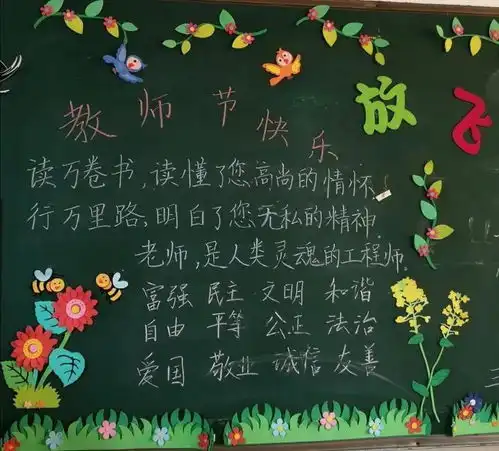 放飞
教师节快乐
读万卷书，读懂了您高尚的情怀
行万里路，明白了您无私的精神。
老师，是人类灵魂的工程师。
富强 民主 文明 和谐
自由 平等 公正 法治
爱国 敬业 诚信 友善